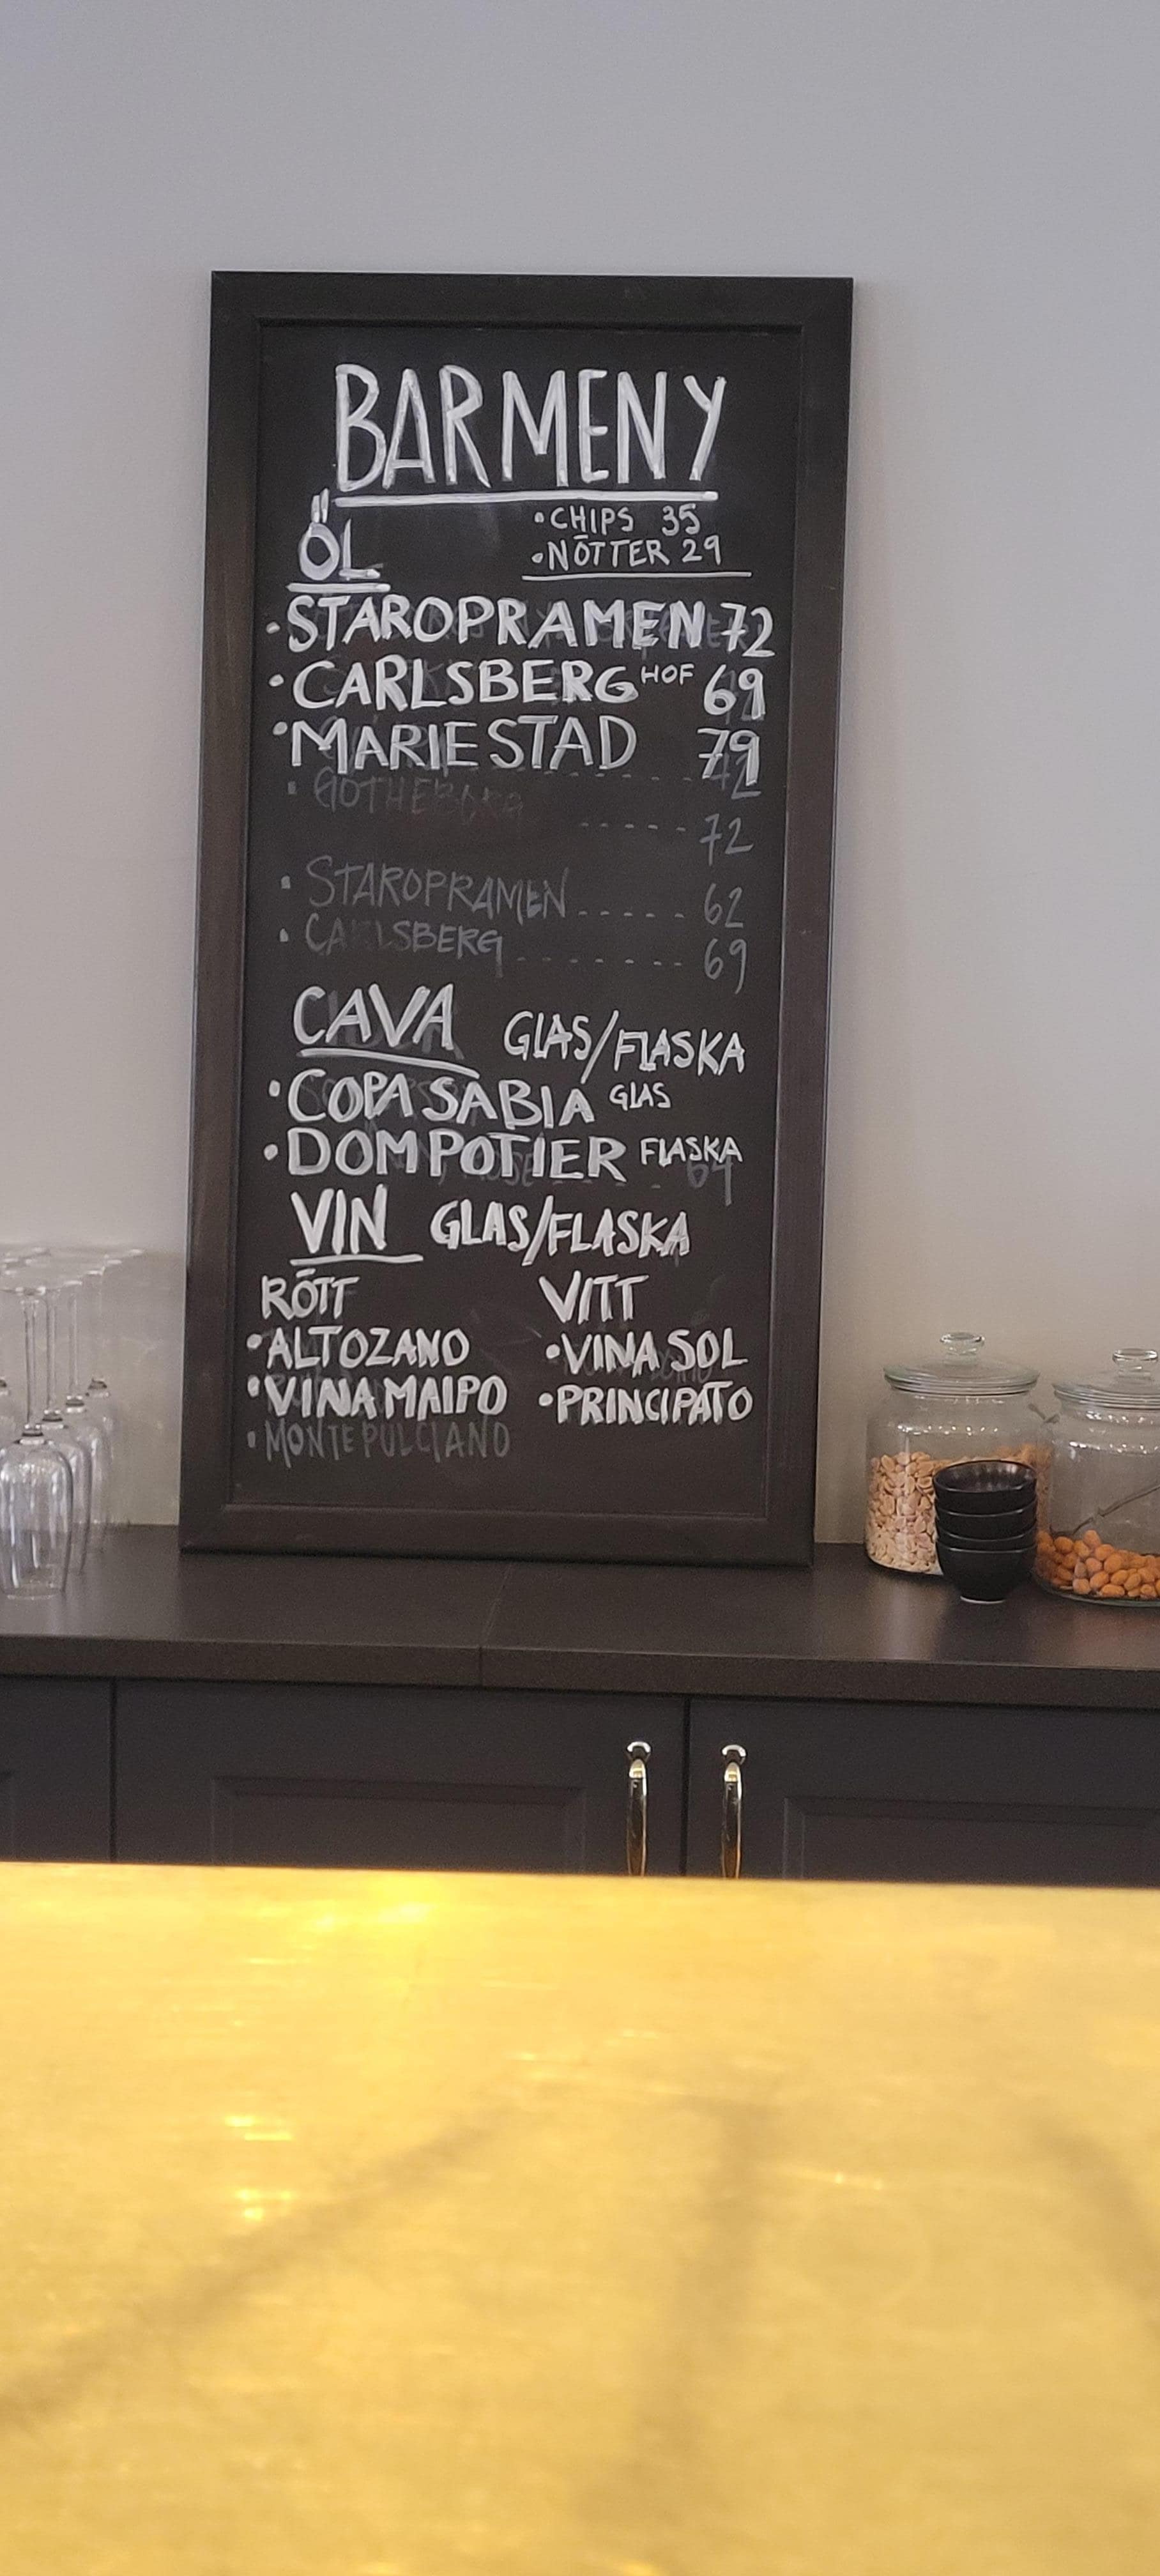 BARMENY
ÖL
• CHIPS 35
• NÖTTER 29
• STAROPRAMEN 72
• CARLSBERG HOF 69
• MARIESTAD 79
• GÖTHEBORG
----- 72
• STAROPRAMEN ----- 62
• CARLSBERG ------- 69
CAVA GLAS/FLASKA
• COPA SABIA GLAS
• DOM POTIER FLASKA
VIN GLAS/FLASKA
RÖTT VITT
• ALTOZANO • VINA SOL
• VINA MAIPO • PRINCIPATO
• MONTEPULCIANO